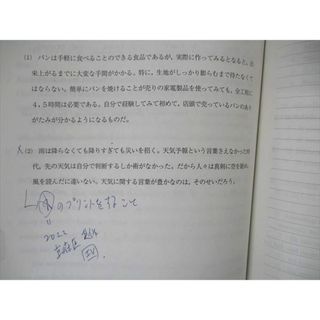 (1) パンは手軽に食べることのできる食品であるが、実際に作ってみるとなると、出
来上がるまでに大変な手間がかかる。特に、生地がしっかり膨らむまで待たなくて
はならない。簡単にパンを焼けることが売りの家電製品を使ってみても、全工程に
4、5時間は必要である。自分で経験してみて初めて、店頭で売っているパンのあり
がたみが分かるようになるものだ。
(2) 雨は降らなくても降りすぎても災いを招く。天気予報という言葉さえなかった時
代、先の天気は自分で判断するしか術がなかった。だから人々は真剣に空を眺め、
風を読んだに違いない。天気に関する言葉が豊かなのは、そのせいだろう。
のプリントをすること
2022